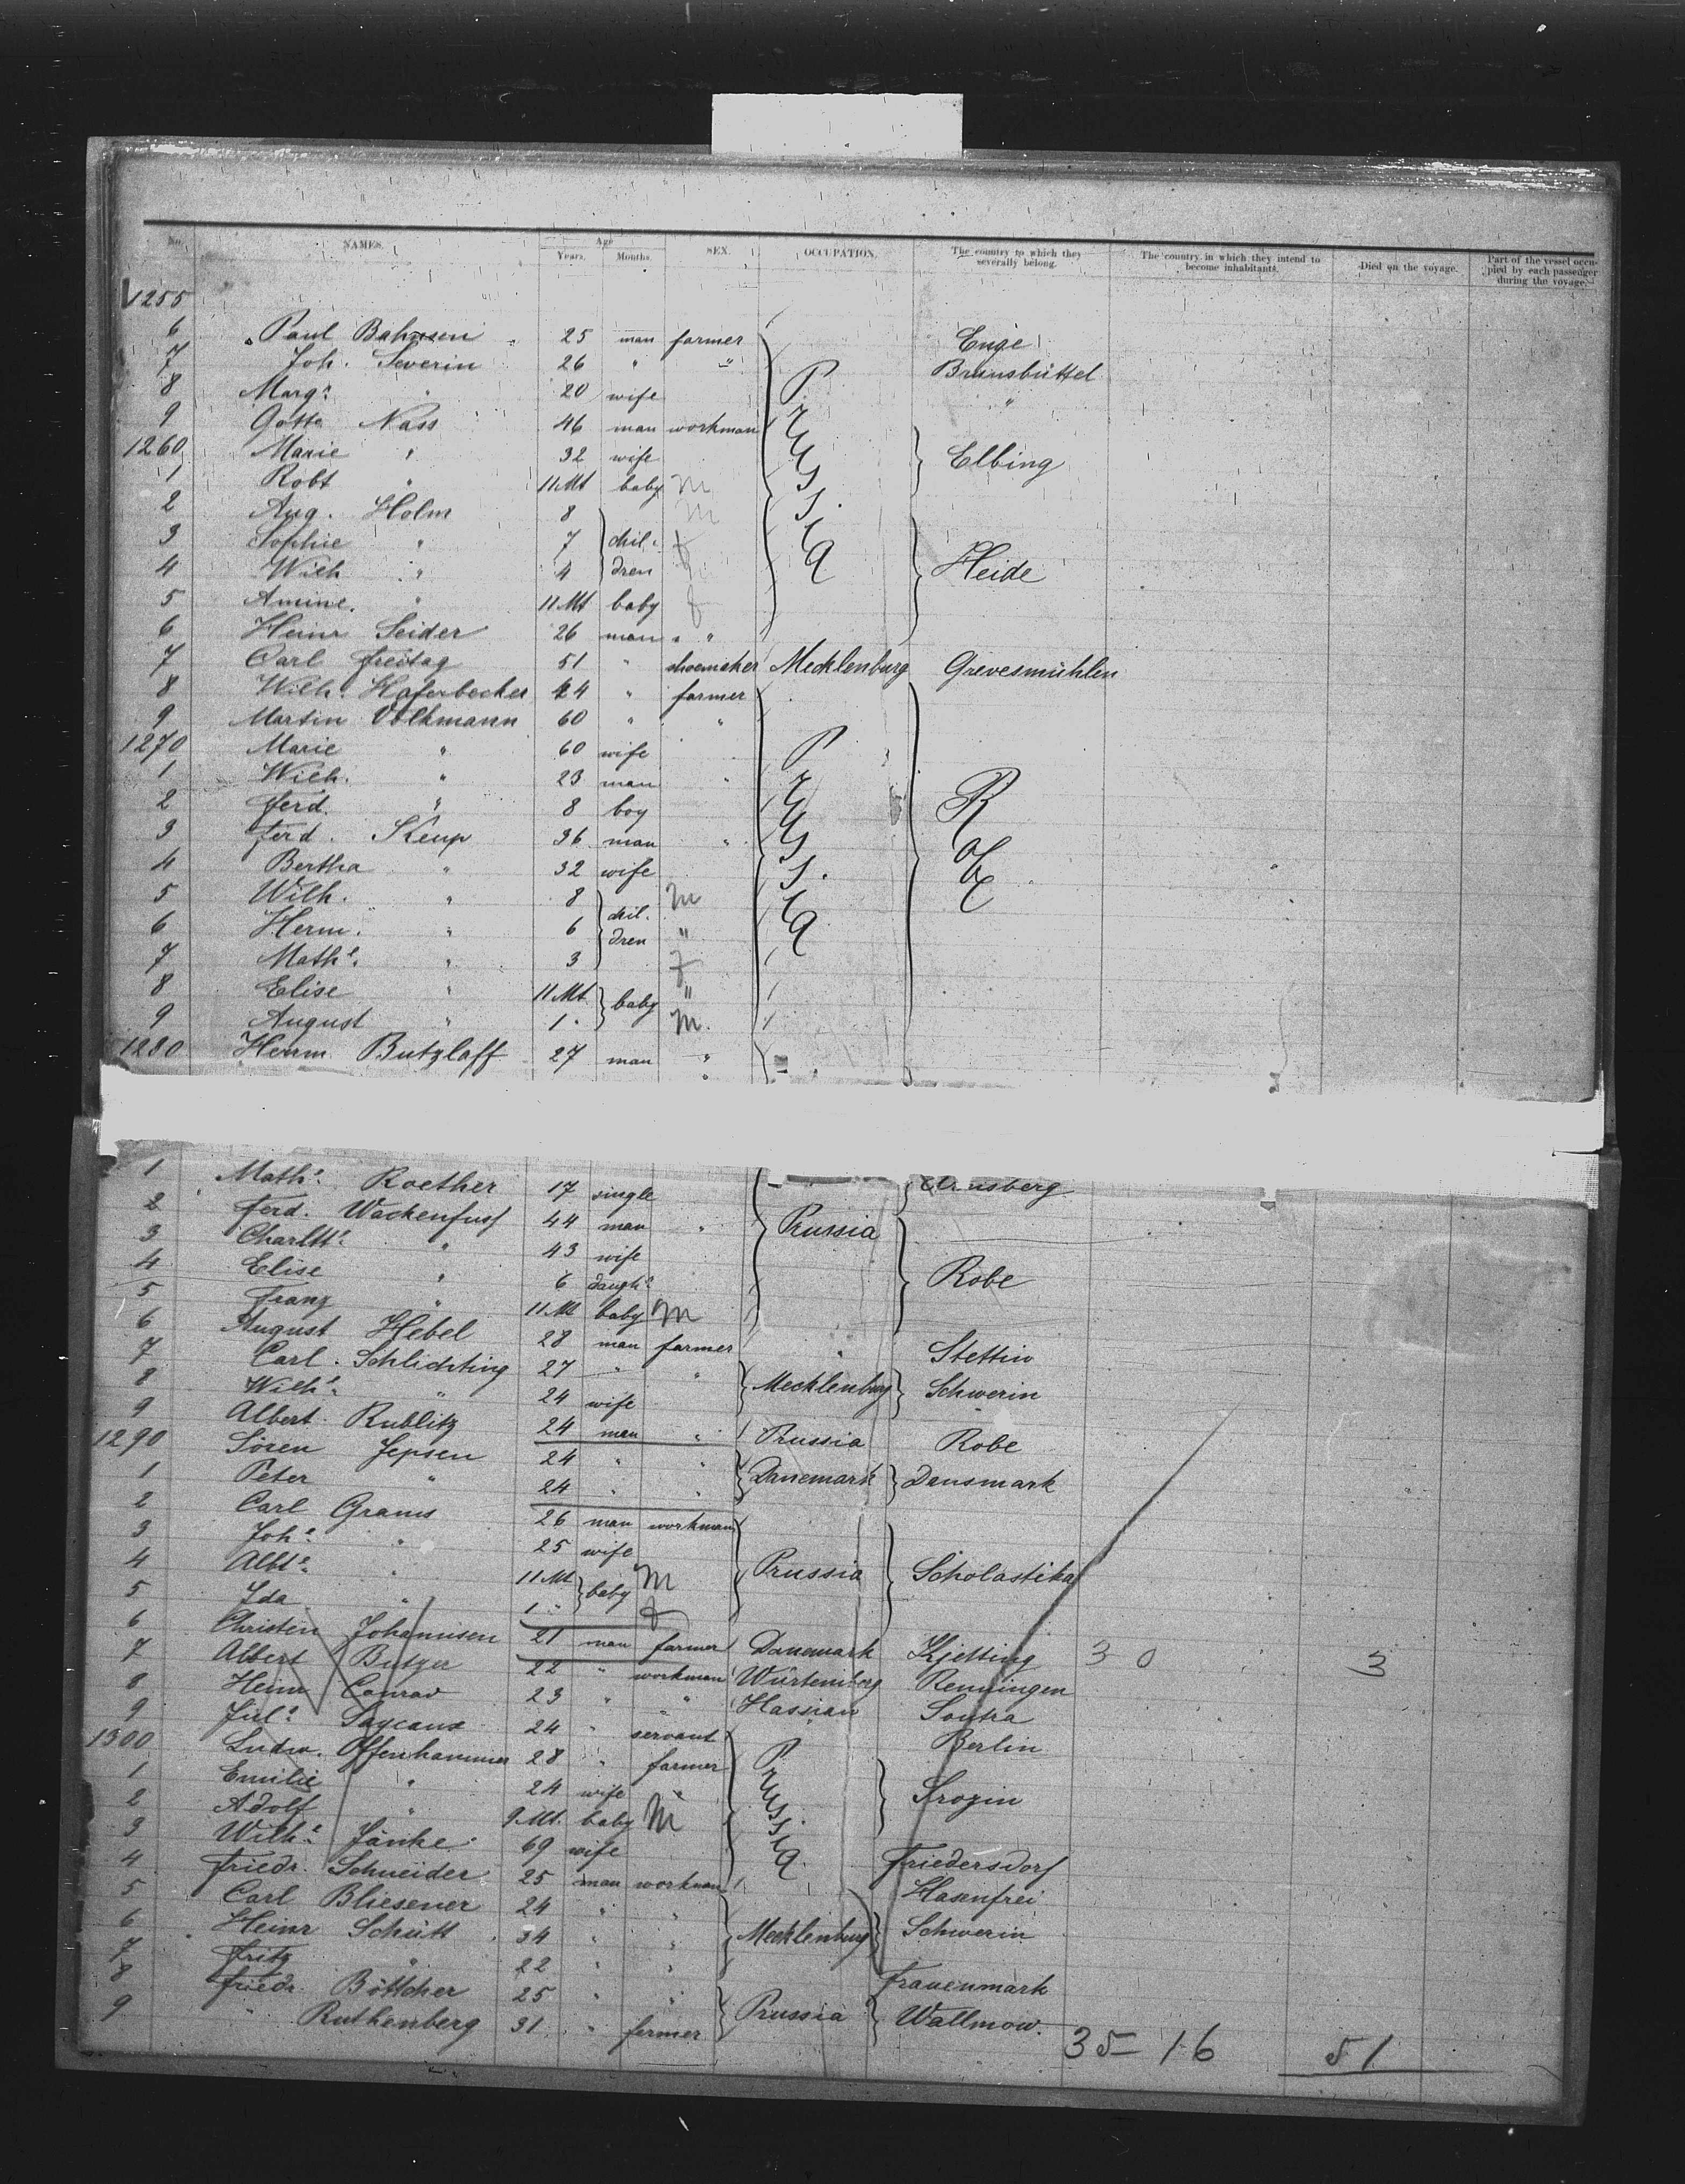 No. NAMES. Age Years. Months. SEX. OCCUPATION. The country to which they severally belong. The country in which they intend to become inhabitants. Died on the voyage. Part of the vessel occupied by each passenger during the voyage.
1255
6 Paul Bahnsen 25 man farmer Enge
7 Joh. Severin 26 " " Brunsbüttel
8 Marge " 20 wife "
9 Gotte Nass 46 man workman
1260 Marie " 32 wife Elbing
1 Robt " 11 Mt baby m
2 Aug. Holm 8 m
3 Sophie " 7 chil- f
4 Wilh " 4 dren f Heide
5 Amine. " 11 Mt baby f
Prussia
6 Heinr Seider 26 man " "
7 Carl Freitag 51 " shoemaker Mecklenburg Grevesmühlen
8 Wilh. Haferbecker 24 " farmer
9 Martin Volkmann 60 " "
1270 Marie " 60 wife
1 Wilh. " 23 man "
2 Ferd. " 8 boy
3 Ferd. Keup 36 man "
4 Bertha " 32 wife
Prussia Robe
5 Wilh. " 8 m
6 Herm. " 6 chil- dren "
7 Mathe. " 3 f
8 Elise " 11 Mt baby "
9 August " 1 " m.
1280 Herm Butzlaff 27 man "
1 Mathe. Roether 17 single
2 Ferd. Wackenfuss 44 man " Prussia
3 Charltte. " 43 wife
4 Elise " 6 daughtr Robe
5 Franz " 11 M baby m
6 August Hebel 28 man farmer " Stettin
7 Carl. Schlichting 27 " " Mecklenburg Schwerin
8 Wilhe. " 24 wife
9 Albert Rublitz 24 man " Prussia Robe
1290 Sören Jepsen 24 " " Danemark Dansmark
1 Peter " 24 " "
2 Carl Grams 26 man workman
3 Johe. " 25 wife
4 Albte. " 11 Mt baby m Prussia Scholastika
5 Ida " 1 " f
6 Christen Johannsen 21 man farmer Danemark Kjetting 3 0 3
7 Albert Butzer 22 " workman Würtemberg Renningen
8 Heinr Conrad 23 " " Hassian Sontra
9 Jul. 24 " servant Berlin
1300 Ludw. Offenhammer 28 " farmer
1 Emilie " 24 wife "
2 Adolf " 9 Mt. baby m
Prussia
3 Wilhe. Jänke 69 wife Friedersdorf
4 Friedr. Schneider 25 man workman Hasenfrei
5 Carl Bliesener 24 " "
6 Heinr Schütt 34 " " Mecklenburg Schwerin
7 Fritz " 22 " " Frauenmark
8 Friedr. Böttcher 25 " "
9 " Ruthenberg 31 " farmer Prussia Wallmow.
35 - 16 51